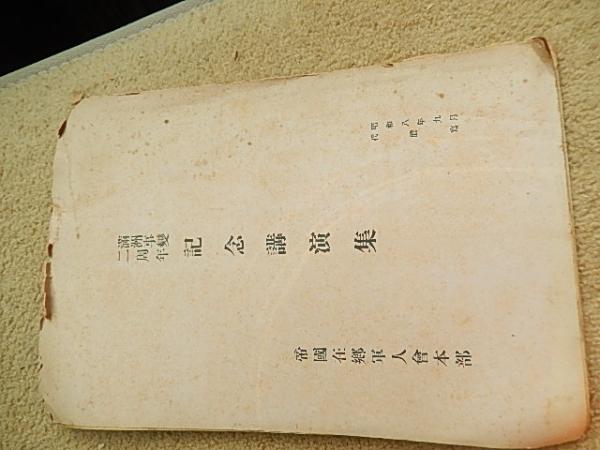 昭和八年九月
代謄寫
滿洲事變
二周年
記念講演集
帝國在鄉軍人會本部